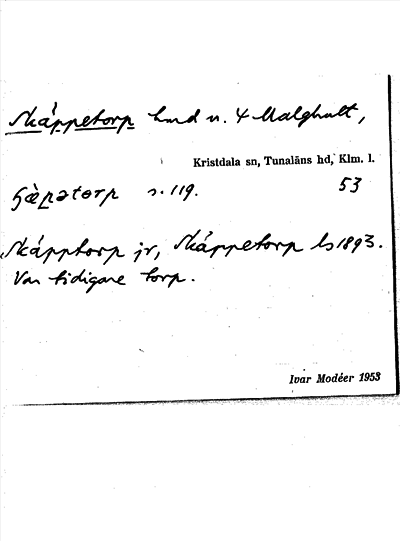 Skäppetorp lmd u. 4 Malghult,
Kristdala sn, Tunaläns hd, Klm. l.
53
s. 119.
Skäpptorp jr, Skäppetorp ls 1893.
Var tidigare torp.
Ivar Modéer 1953